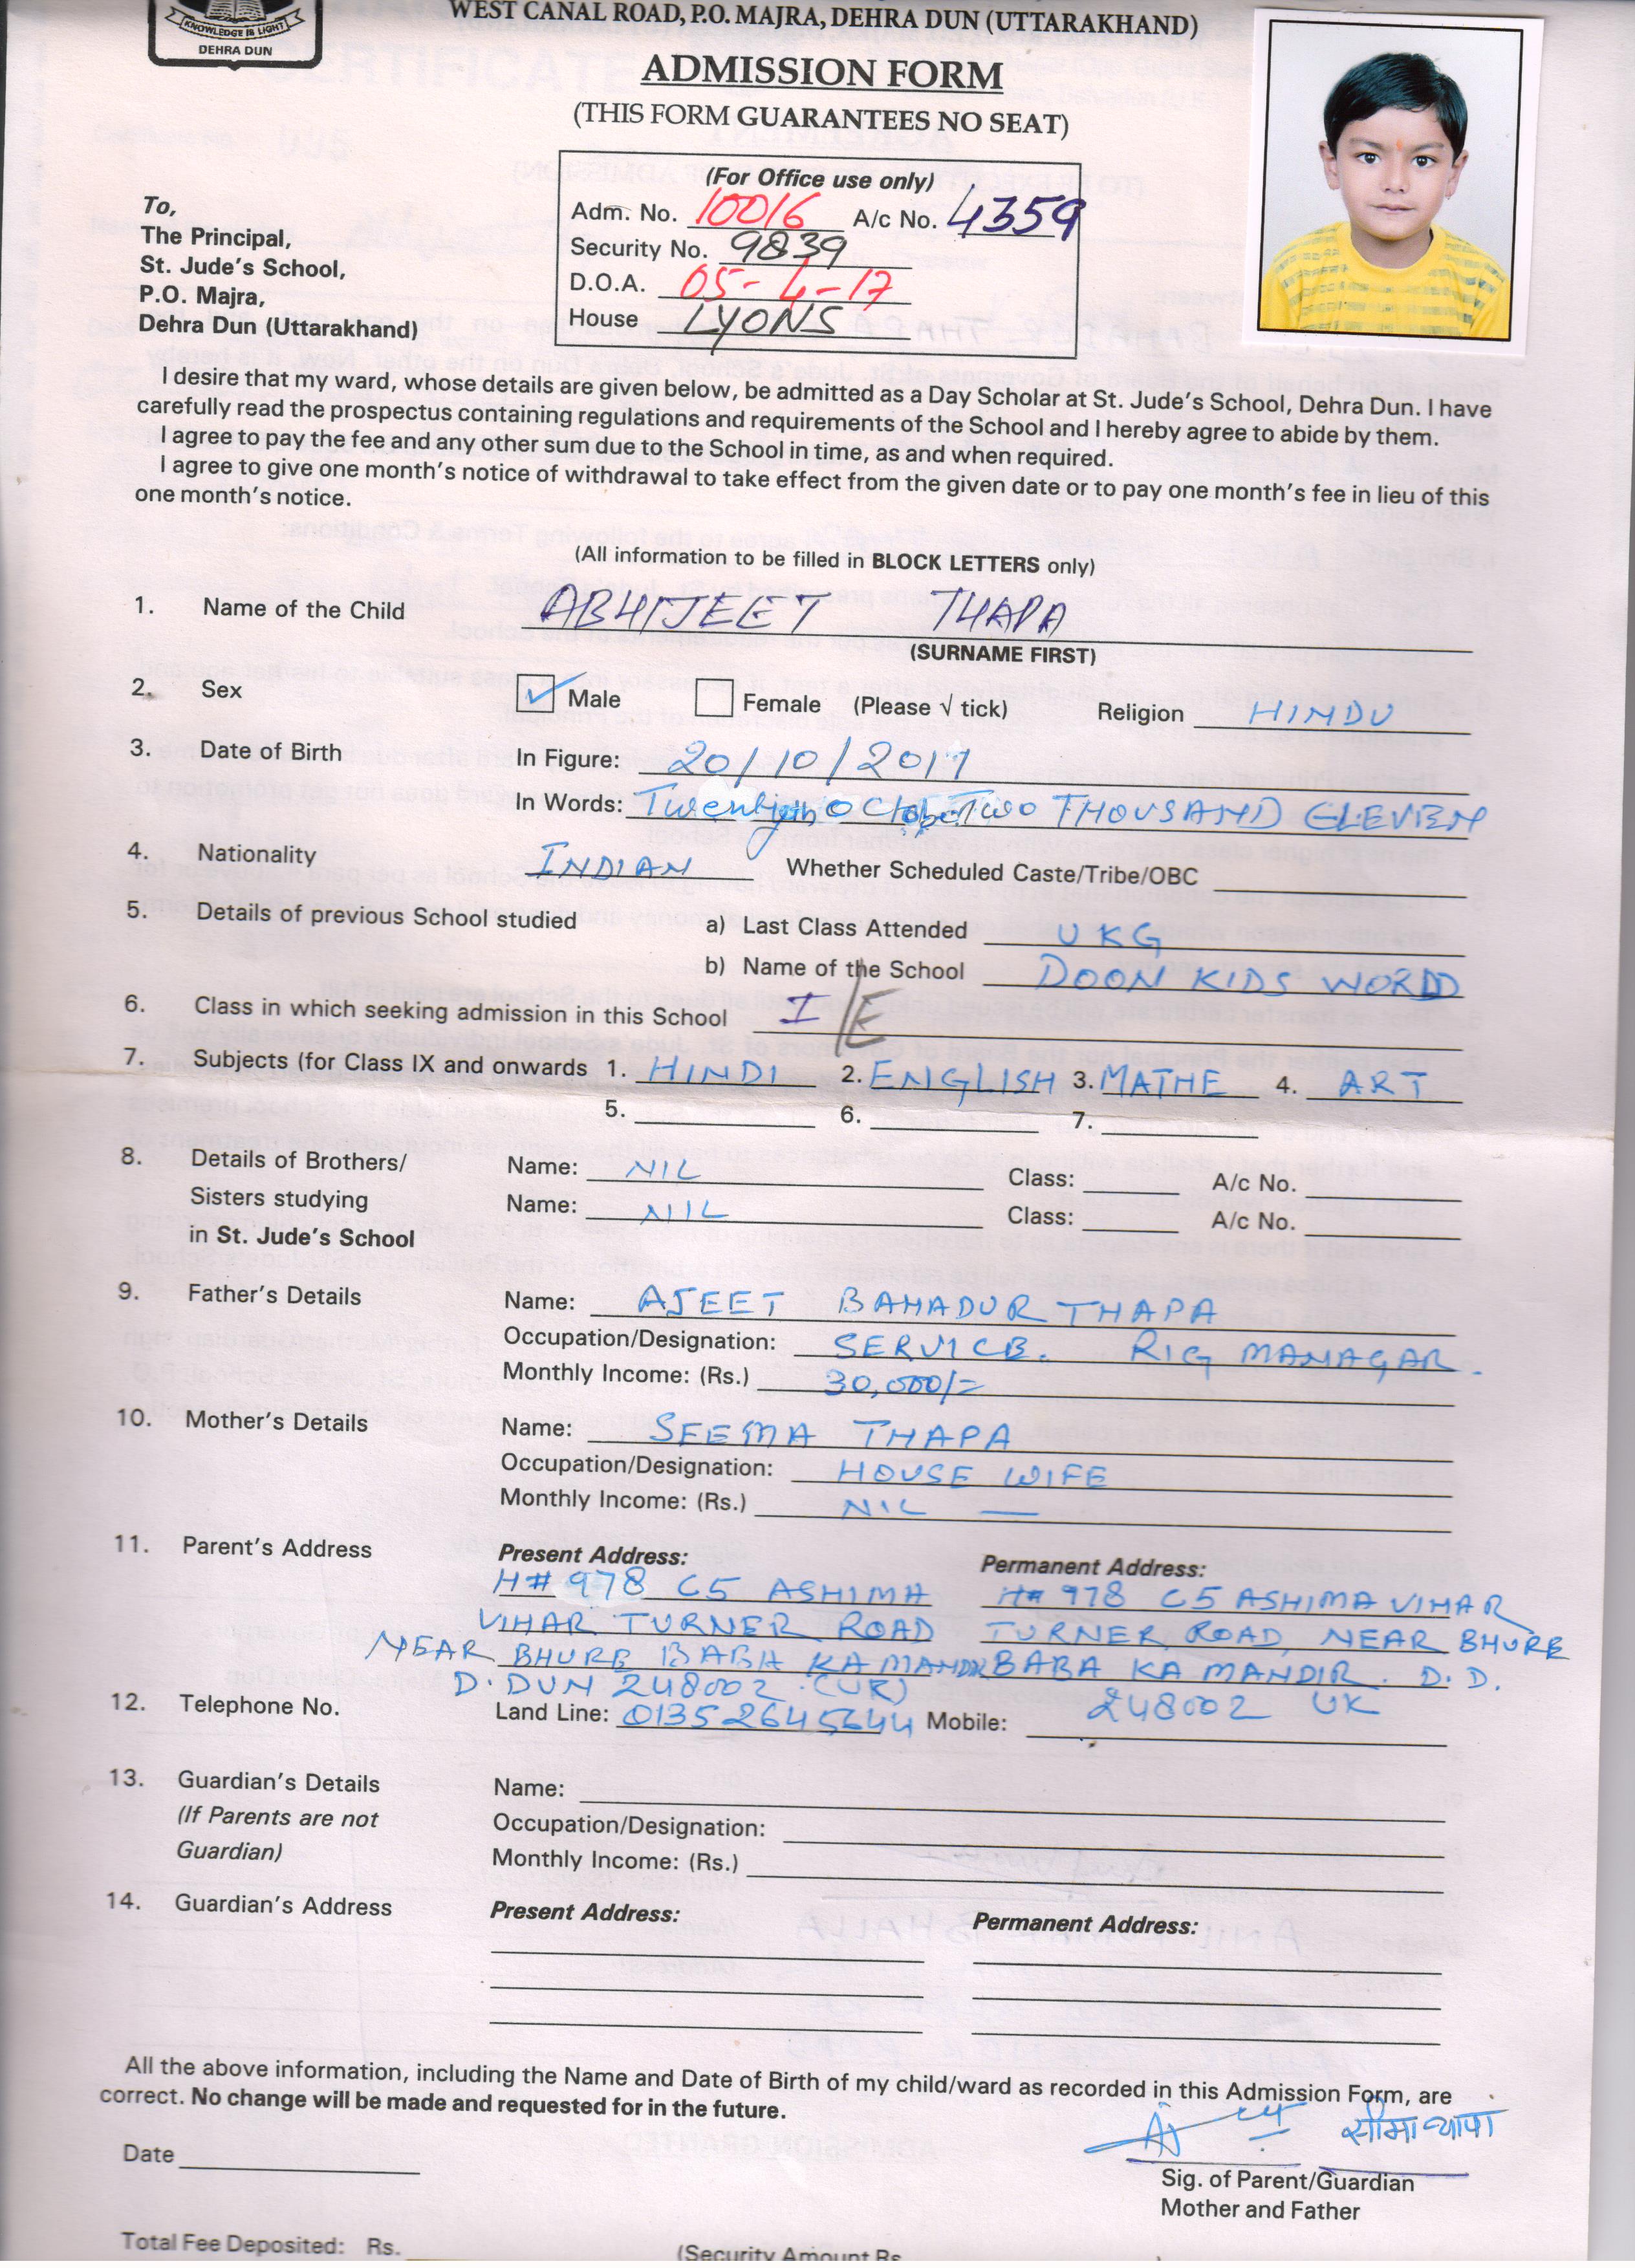 KNOWLEDGE IS LIGHT
DEHRA DUN
WEST CANAL ROAD, P.O. MAJRA, DEHRA DUN (UTTARAKHAND)
ADMISSION FORM
(THIS FORM GUARANTEES NO SEAT)
(For Office use only)
Adm. No. 10016 A/c No. 4359
Security No. 9839
D.O.A. 05-4-17
House LYONS
To,
The Principal,
St. Jude's School,
P.O. Majra,
Dehra Dun (Uttarakhand)
I desire that my ward, whose details are given below, be admitted as a Day Scholar at St. Jude's School, Dehra Dun. I have
carefully read the prospectus containing regulations and requirements of the School and I hereby agree to abide by them.
I agree to pay the fee and any other sum due to the School in time, as and when required.
I agree to give one month's notice of withdrawal to take effect from the given date or to pay one month's fee in lieu of this
one month's notice.
(All information to be filled in BLOCK LETTERS only)
1. Name of the Child ABHIJEET THAPA
(SURNAME FIRST)
2. Sex Male Female (Please √ tick) Religion HINDU
3. Date of Birth In Figure: 20/10/2011
In Words: Twenty October Two THOUSAND ELEVEN
4. Nationality INDIAN Whether Scheduled Caste/Tribe/OBC
5. Details of previous School studied a) Last Class Attended UKG
b) Name of the School DOON KIDS WORD
6. Class in which seeking admission in this School I/E
7. Subjects (for Class IX and onwards 1. HINDI 2. ENGLISH 3. MATHE 4. ART
5. 6. 7.
8. Details of Brothers/ Name: NIL Class: A/c No.
Sisters studying Name: NIL Class: A/c No.
in St. Jude's School
9. Father's Details Name: AJEET BAHADUR THAPA
Occupation/Designation: SERVICE. RIG MANAGAR.
Monthly Income: (Rs.) 30,000/=
10. Mother's Details Name: SEEMA THAPA
Occupation/Designation: HOUSE WIFE
Monthly Income: (Rs.) NIL —
11. Parent's Address Present Address: Permanent Address:
H# 978 C5 ASHIMA H# 978 C5 ASHIMA VIHAR
VIHAR TURNER ROAD TURNER ROAD, NEAR BHURE
NEAR BHURE BABA KA MANDIR BABA KA MANDIR. D.D.
D.DUN 248002 (UK) 248002 UK
12. Telephone No. Land Line: 01352645644 Mobile:
13. Guardian's Details Name:
(If Parents are not Occupation/Designation:
Guardian) Monthly Income: (Rs.)
14. Guardian's Address Present Address: Permanent Address:
All the above information, including the Name and Date of Birth of my child/ward as recorded in this Admission Form, are
correct. No change will be made and requested for in the future.
सीमा थापा
Date
Sig. of Parent/Guardian
Mother and Father
Total Fee Deposited: Rs. (Security Amount Rs.